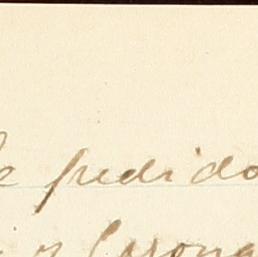 e pedido
y Corona